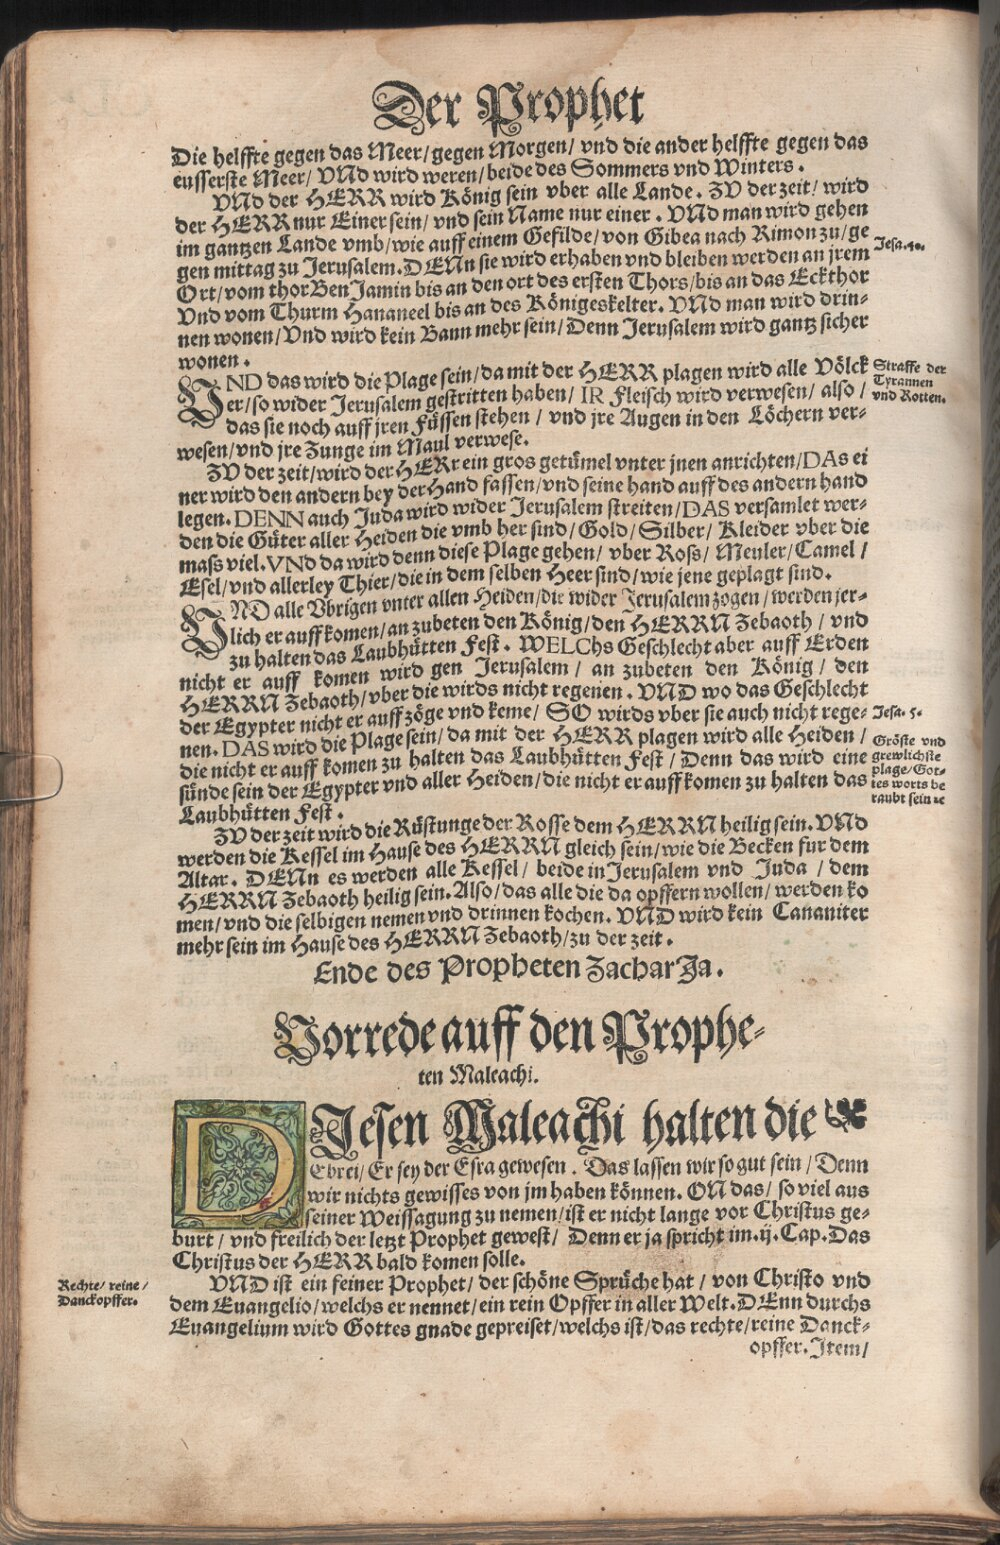 Der Prophet
Die helffte gegen das Meer/gegen Morgen/ vnd die ander helffte gegen das
eusserste Meer/ VNd wird weren/ beide des Sommers vnd Winters.
VNd der HERR wird König sein vber alle Lande. ZV der zeit/ wird
der HERR nur Einer sein/ vnd sein Name nur einer. VNd man wird gehen
im gantzen Lande vmb/wie auff einem Gefilde/von Gibea nach Rimon zu/ge
gen mittag zu Jerusalem. DENn sie wird erhaben vnd bleiben werden an jrem
Jesa.40.
Ort/vom thor BenJamin bis an den ort des ersten Thors/bis an das Eckthor
Vnd vom Thurm Hananeel bis an des Königeskelter. VNd man wird drin-
nen wonen/Vnd wird kein Bann mehr sein/Denn Jerusalem wird gantz sicher
wonen.
VND das wird die Plage sein/da mit der HERR plagen wird alle Völck
er/so wider Jerusalem gestritten haben/ IR Fleisch wird verwesen/ also/
das sie noch auff jren Füssen stehen/ vnd jre Augen in den Löchern ver-
wesen/vnd jre Zunge im Maul verwese.
Straffe der
Tyrannen
vnd Rotten.
ZV der zeit/wird der HERr ein gros getümel vnter jnen anrichten/DAs ei
ner wird den andern bey der Hand fassen/vnd seine hand auff des andern hand
legen. DENN auch Juda wird wider Jerusalem streiten/DAS versamlet wer-
den die Güter aller Heiden die vmb her sind/Gold/Silber/ Kleider vber die
mass viel. VNd da wird denn diese Plage gehen/ vber Ross/ Meuler/Camel/
Esel/vnd allerley Thier/die in dem selben Heer sind/wie jene geplagt sind.
VND alle Vbrigen vnter allen Heiden/die wider Jerusalem zogen/werden jer-
lich er auff komen/an zubeten den König/den HERRN Zebaoth/ vnd
zu halten das Laubhütten Fest. WELChs Geschlecht aber auff Erden
nicht er auff komen wird gen Jerusalem/ an zubeten den König/ den
HERRN Zebaoth/vber die wirds nicht regenen. VND wo das Geschlecht
der Egypter nicht er auff zöge vnd keme/ SO wirds vber sie auch nicht rege-
Jesa. 5.
nen. DAS wird die Plage sein/da mit der HERR plagen wird alle Heiden/
die nicht er auff komen zu halten das Laubhütten Fest/ Denn das wird eine
sünde sein der Egypter vnd aller Heiden/die nicht er auff komen zu halten das
Laubhütten Fest.
Gröste vnd
grewlichste
plage/Got-
tes worts be
raubt sein ꝛc
ZV der zeit wird die Rüstunge der Rosse dem HERRN heilig sein. VNd
werden die Kessel im Hause des HERRN gleich sein/wie die Becken fur dem
Altar. DENn es werden alle Kessel/ beide in Jerusalem vnd Juda/ dem
HERRN Zebaoth heilig sein. Also/das alle die da opffern wollen/werden ko
men/vnd die selbigen nemen vnd drinnen kochen. VND wird kein Cananiter
mehr sein im Hause des HERRN Zebaoth/zu der zeit.
Ende des Propheten ZacharJa.
Vorrede auff den Prophe-
ten Maleachi.
DJesen Maleachi halten die
Ebrei/Er sey der Esra gewesen. Das lassen wir so gut sein/Denn
wir nichts gewisses von jm haben können. ON das/ so viel aus
seiner Weissagung zu nemen/ist er nicht lange vor Christus ge-
burt/ vnd freilich der letzt Prophet gewest/ Denn er ja spricht im.ij.Cap.Das
Christus der HERR bald komen solle.
VND ist ein feiner Prophet/der schöne Sprüche hat/von Christo vnd
dem Euangelio/welchs er nennet/ein rein Opffer in aller Welt. DEnn durchs
Euangelium wird Gottes gnade gepreiset/welchs ist/das rechte/reine Danck-
Rechte/ reine/
Danckopffer.
opffer. Item/